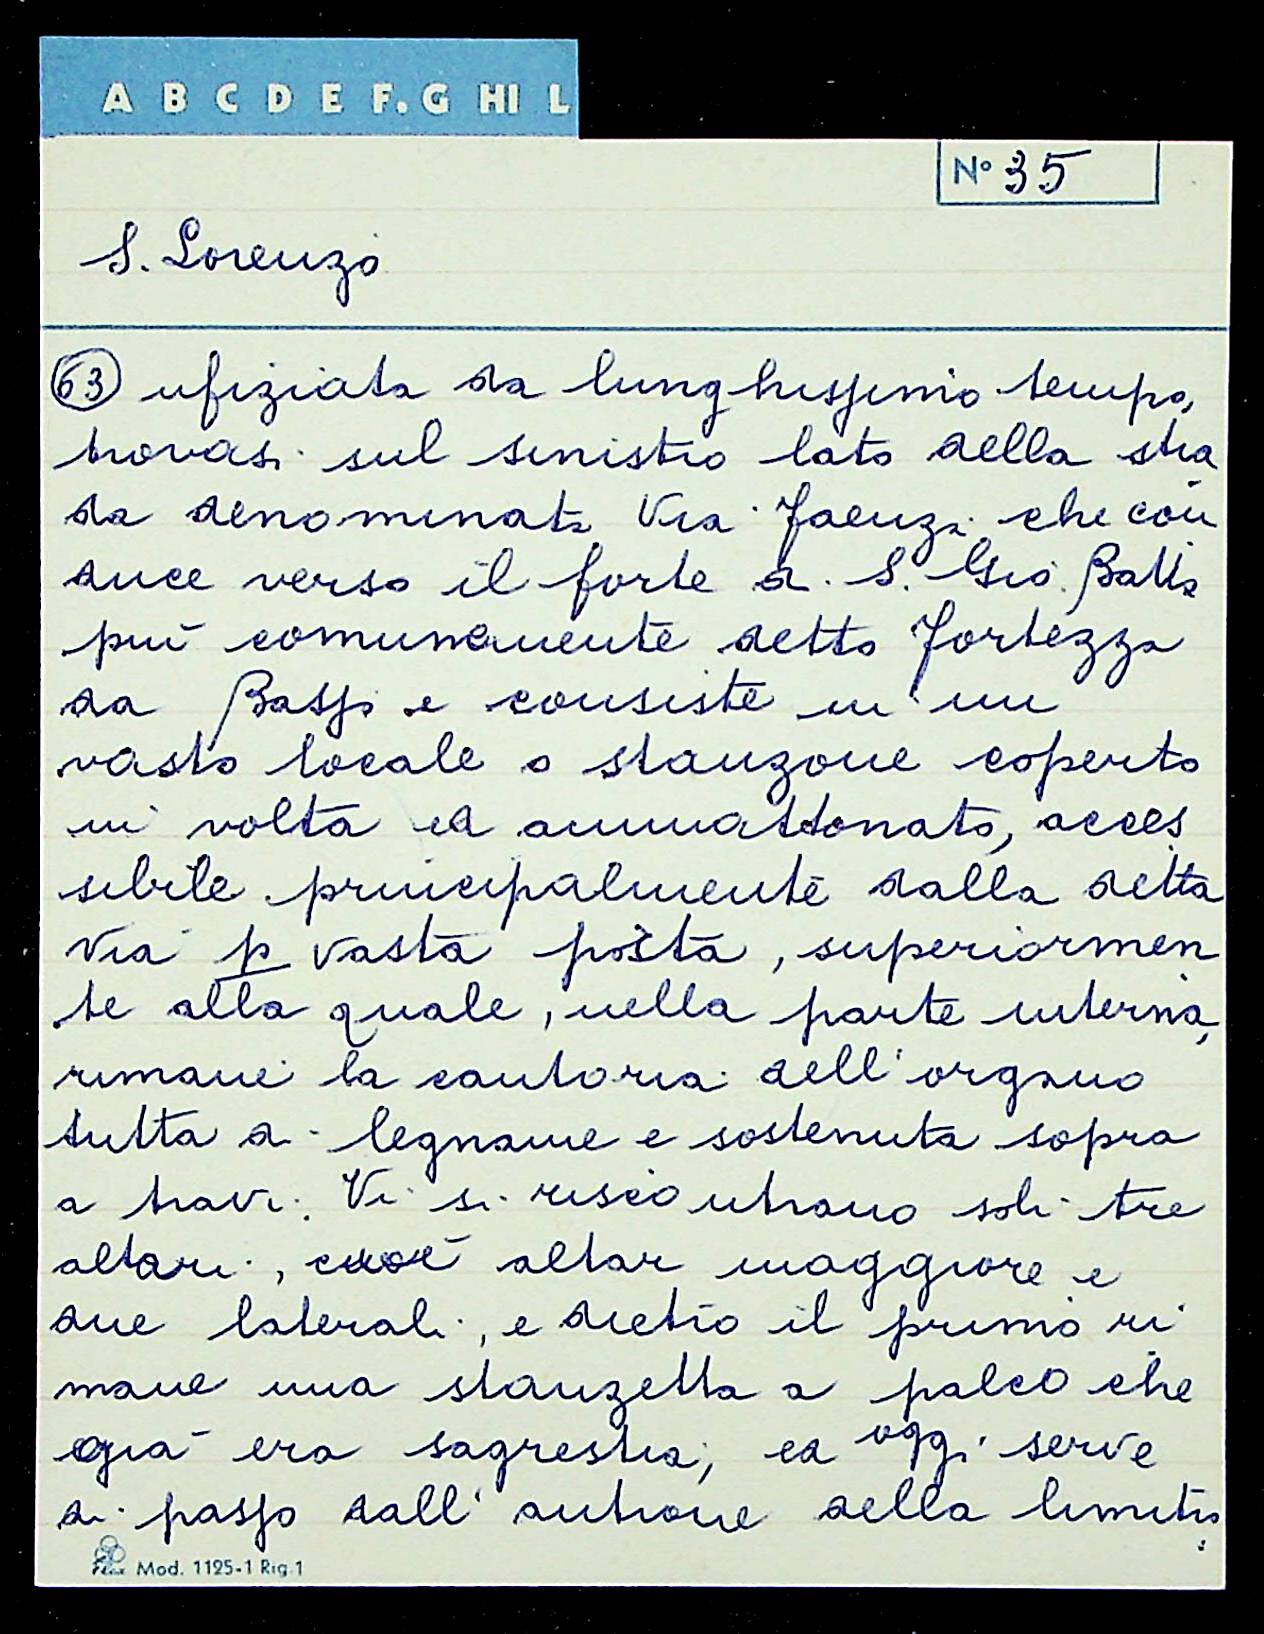 A B C D E F. G HI L
N° 35
S. Lorenzo
63 ufiziata da lunghissimo tempo,
trovasi sul sinistro lato della stra
da denominata Via Faenza che con
duce verso il forte di S. Gio. Batta
più comunemente detto Fortezza
da Basso e consiste in un
vasto locale o stanzone coperto
in volta ed ammattonato, acces
sibile principalmente dalla detta
Via p vasta porta, superiormen
te alla quale, nella parte interna,
rimane la cantoria dell'organo
tutta di legname e sostenuta sopra
a travi. Vi si riscontrano soli tre
altari, cioè altar maggiore e
due laterali, e dietro il primo ri
mane una stanzetta a palco che
già era sagrestia, ed oggi serve
di passo dall'androne della limitro
Mod. 1125-1 Rig.1